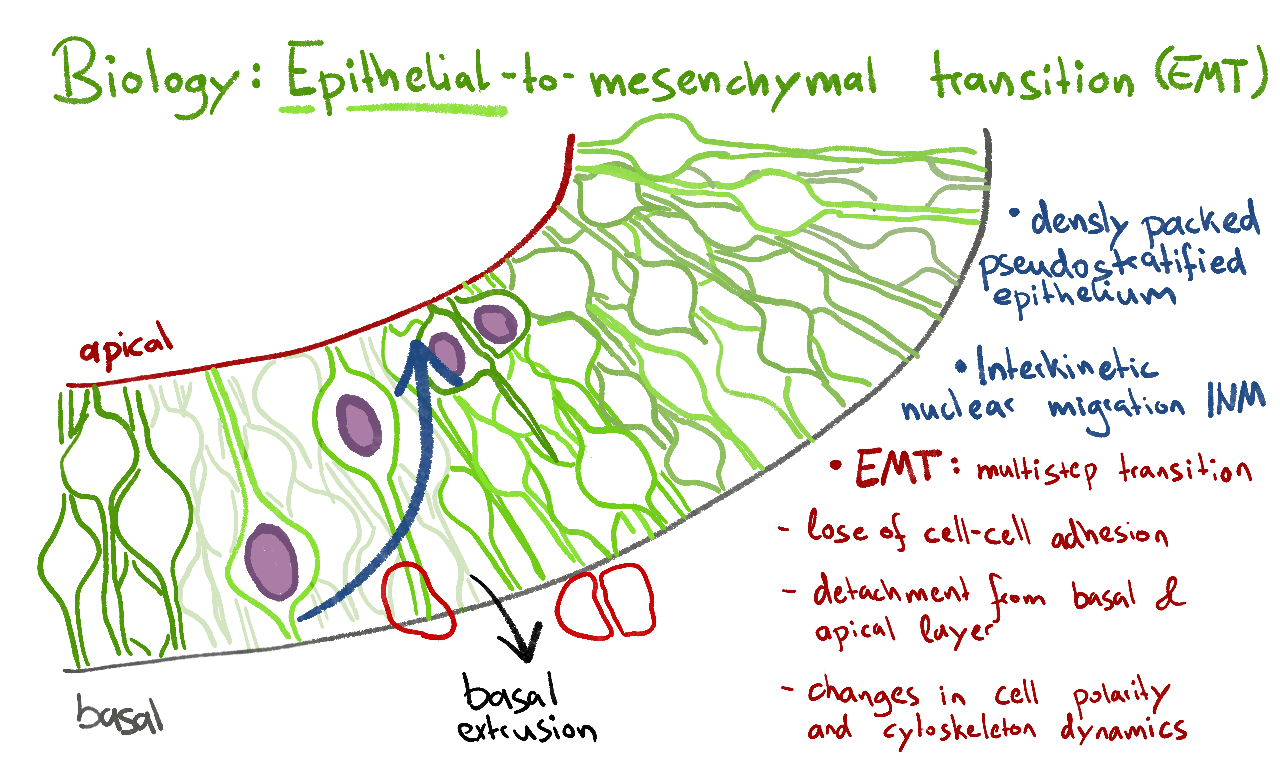 Biology: Epithelial-to-mesenchymal transition (EMT)
apical
• densly packed
pseudostratified
epithelium
• Interkinetic
nuclear migration INM
• EMT: multistep transition
- lose of cell-cell adhesion
- detachment from basal &
apical layer
- changes in cell polarity
and cyloskeleton dynamics
basal
extrusion
basal